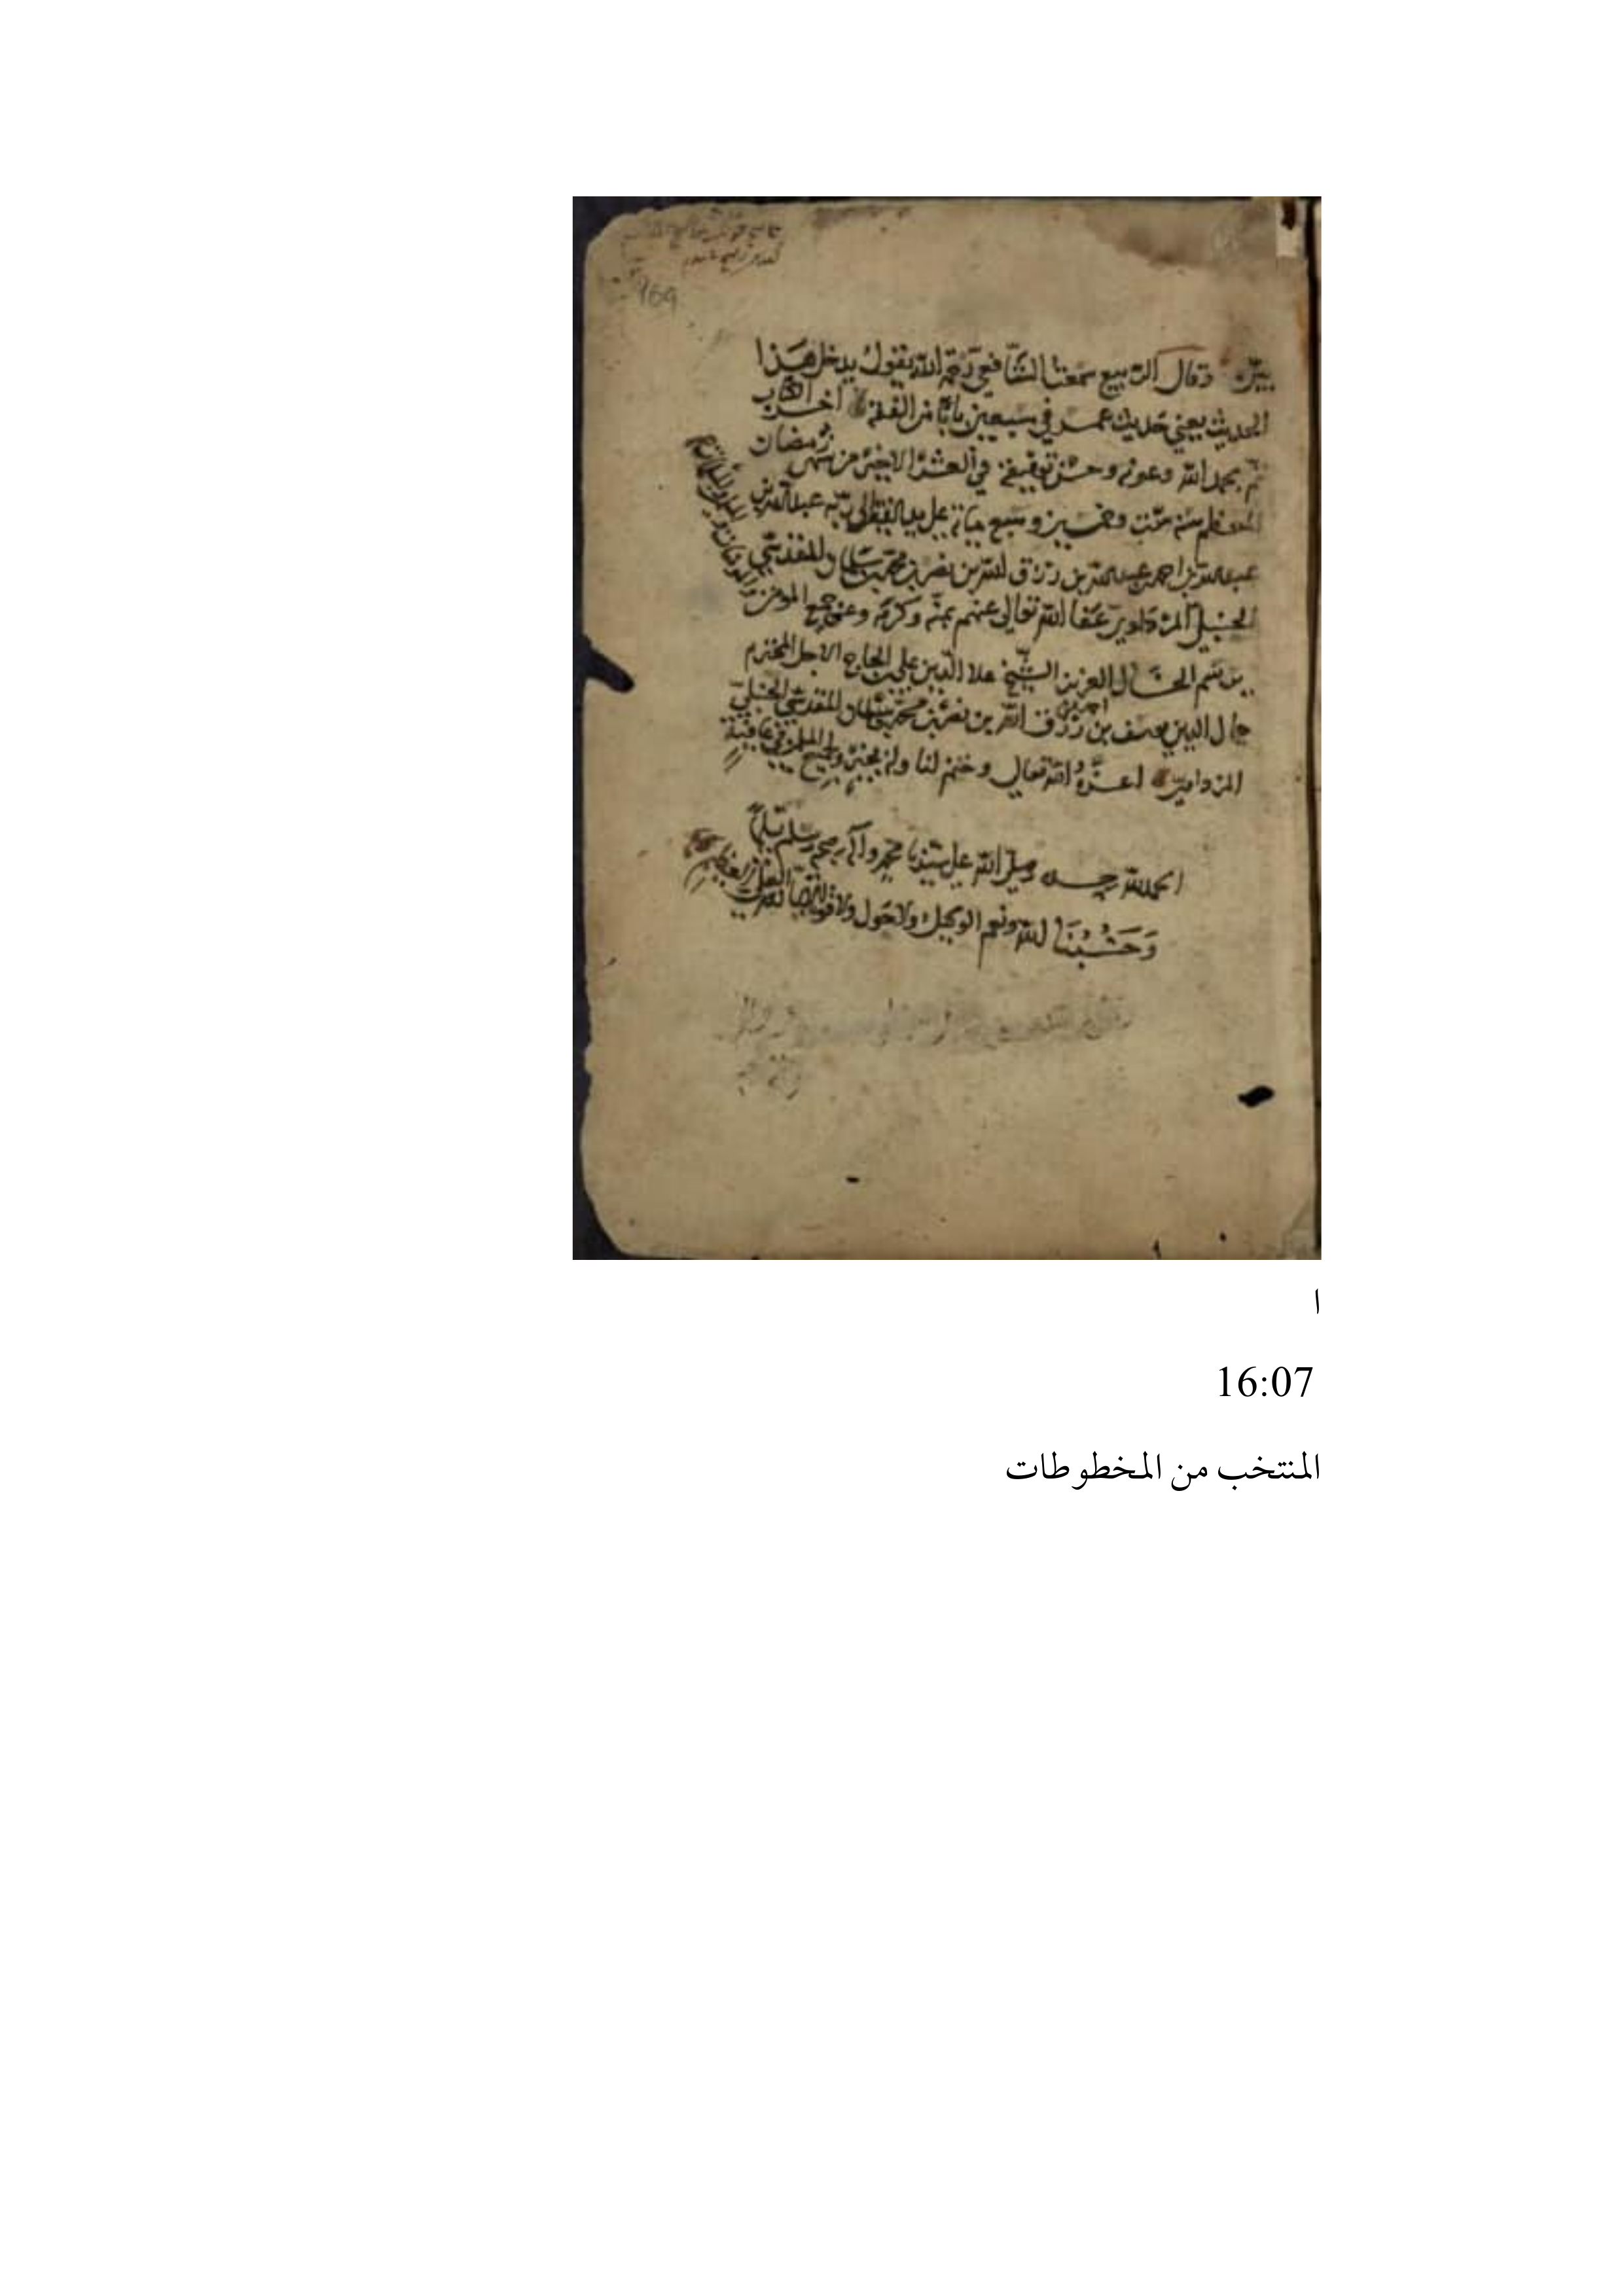 وقال الربيع سمعت الشافعي رحمه الله يقول يدخل هذا
الحديث يعني حديث عمر في سبعين بابًا من الفقه اخر الكتاب
تم بحمد الله وعونه وحسن توفيقه في العشر الاخير من شهر رمضان
المعظم سنة ست وخمسين وسبع مائة على يد الفقير الى ربه عبد الله بن
عبد الله بن احمد بن عبد الله بن رزق الله بن نصر بن محمد بن سلمان المقدسي
الحنبلي المرداوي عفا الله تعالى عنهم بمنه وكرمه وعن جميع المومنين
برسم الخال العزيز الشيخ علا الدين علي بن الحاج الاجل المحترم
جمال الدين يوسف بن احمد بن رزق الله بن نصر بن محمد بن سلمان المقدسي الحنبلي
المرداوي اعزه الله تعالى وختم لنا وله بخير ولجميع المسلمين في عافية
الحمد لله وحده وصلى الله على سيدنا محمد وآله وصحبه وسلم تسليمًا
وَحَسْبُنَا الله ونعم الوكيل ولا حول ولا قوة الا بالله العلي العظيم
169
ا
16:07
المنتخب من المخطوطات